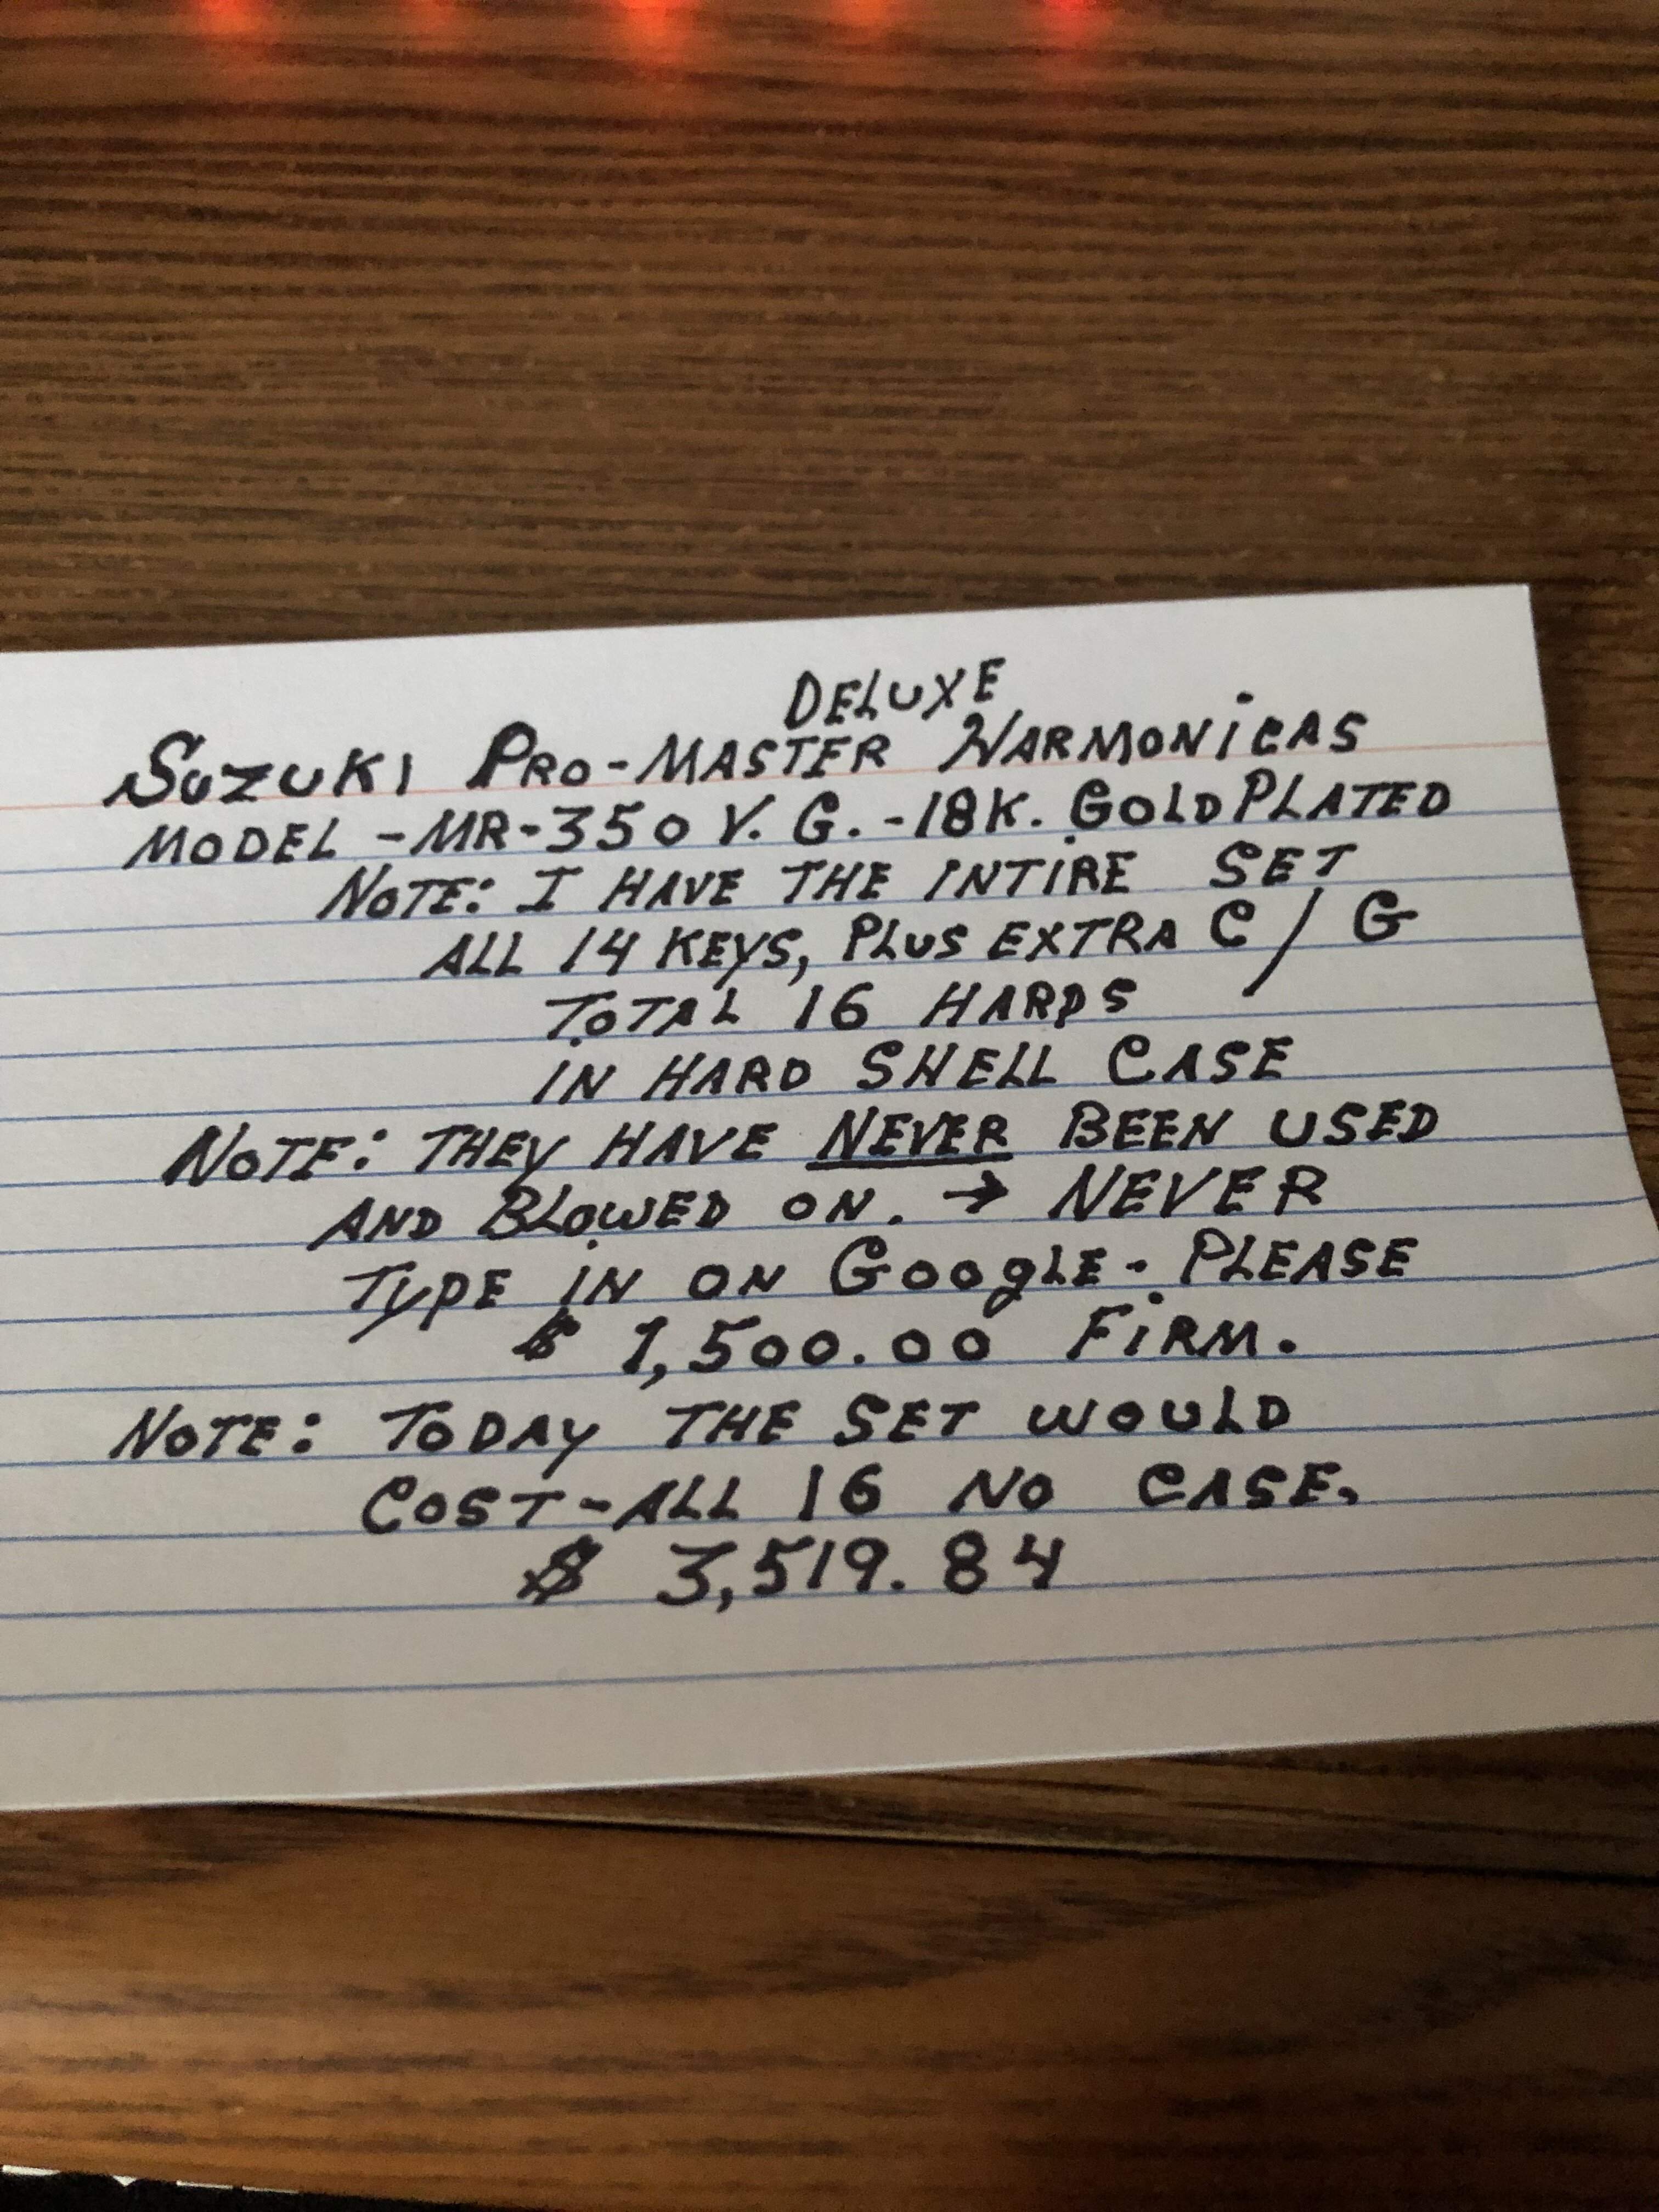 DELUXE
SUZUKI PRO-MASTER HARMONiCAS
MODEL - MR-350 V. G. - 18K. GOLD PLATED
NOTE: I HAVE THE INTIRE SET
ALL 14 KEYS, PLUS EXTRA C / G
TOTAL 16 HARPS
IN HARD SHELL CASE
NOTE: THEY HAVE NEVER BEEN USED
AND BLOWED ON. → NEVER
TYPE IN ON GOOgLE - PLEASE
$ 1,500.00 FiRM.
NOTE: TODAY THE SET WOULD
COST - ALL 16 NO CASE.
$ 3,519.84